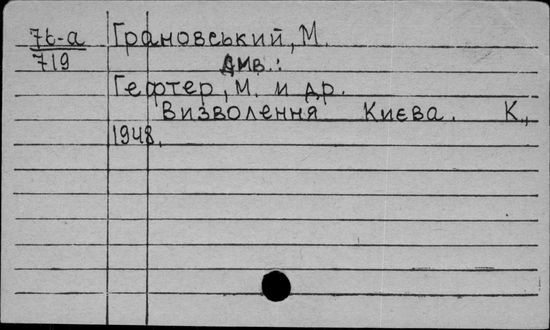 7б-а
719
Грановський, М.
Див.:
Гефтер, М. и др.
Визволення Києва. К.,
1948.